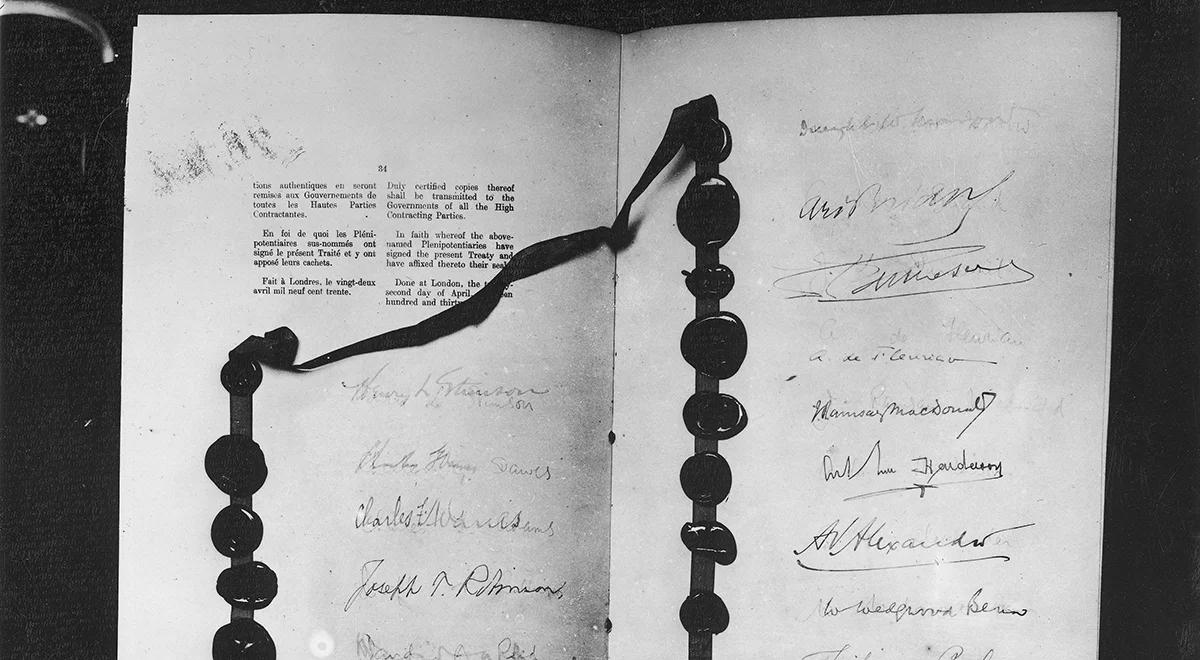 34
tions authentiques en seront
remises aux Gouvernements de
toutes les Hautes Parties
Contractantes.
En foi de quoi les Pléni-
potentiaires sus-nommés ont
signé le présent Traité et y ont
apposé leurs cachets.
Fait à Londres, le vingt-deux
avril mil neuf cent trente.
Duly certified copies thereof
shall be transmitted to the
Governments of all the High
Contracting Parties.
In faith whereof the above-
named Plenipotentiaries have
signed the present Treaty and
have affixed thereto their
Done at London, the
second day of April,
hundred and
Henry L Stimson
Dawes
Charles F Adams
Joseph T. Robinson
A. de Fleuriau
Ramsay MacDonald
Arthur Henderson
A V Alexander
W Wedgwood Benn